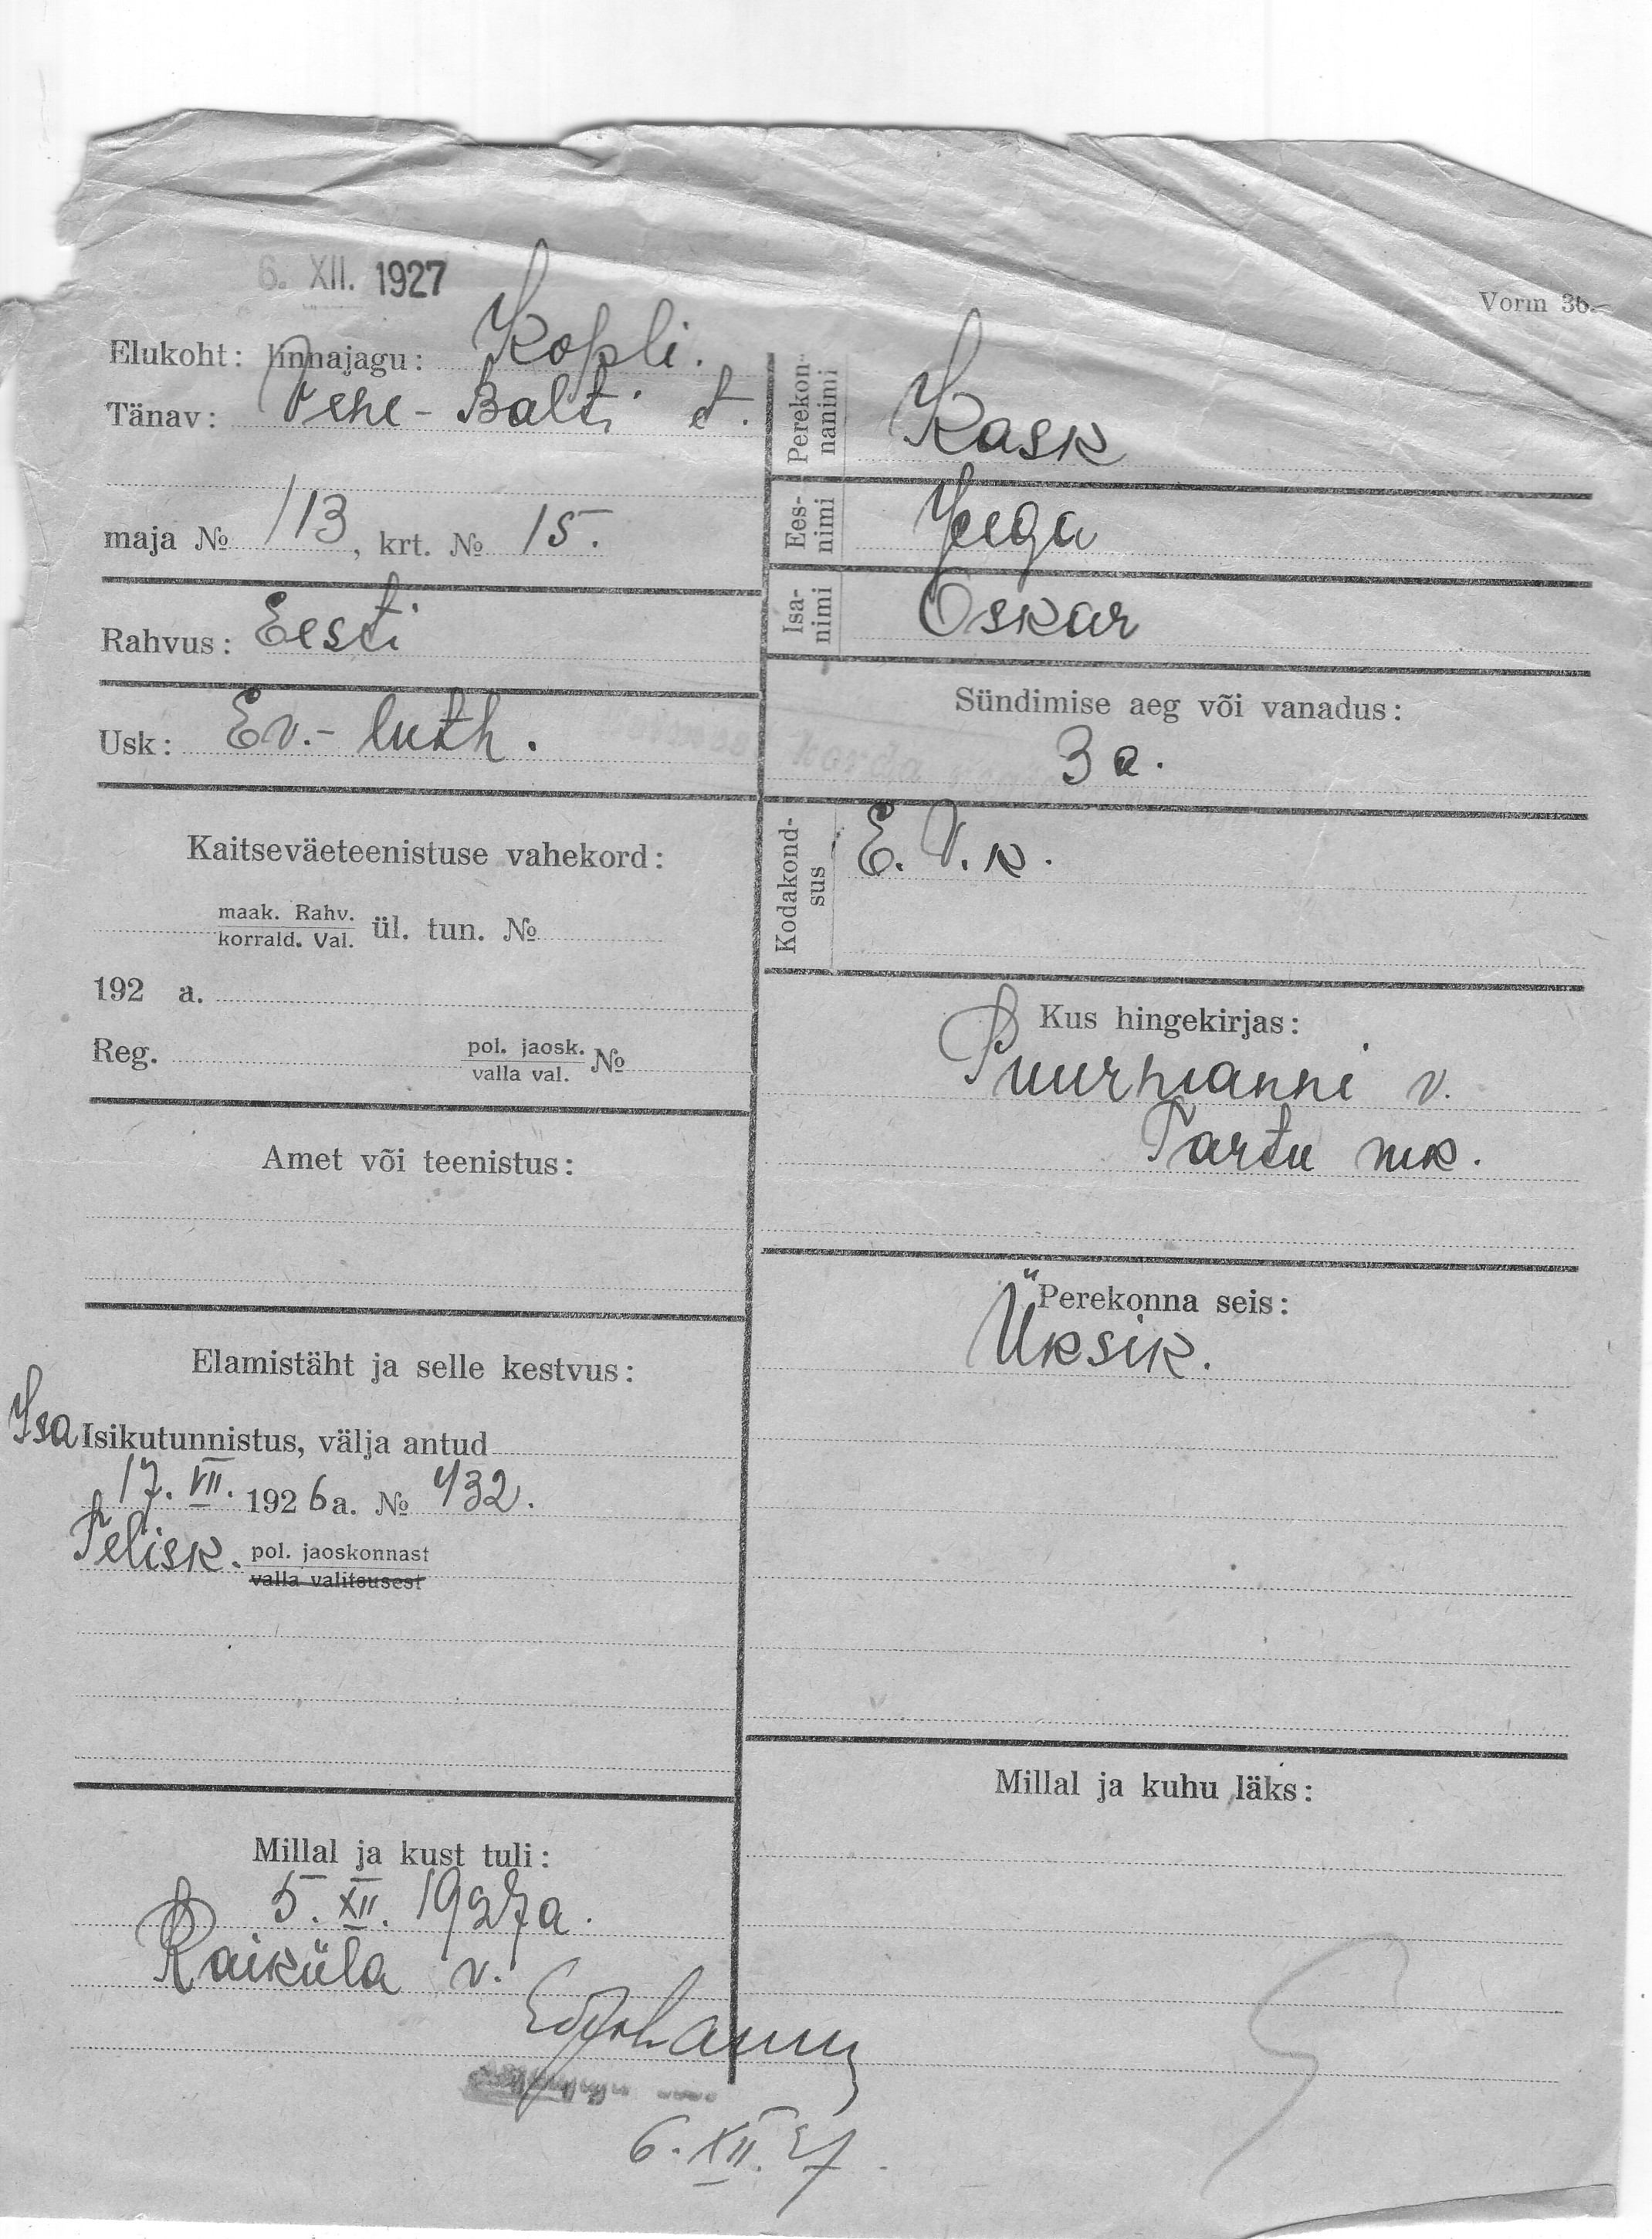 6. XII. 1927
Vorm 36
Elukoht: linnajagu: Kopli.
Tänav: Vene-Balti t.
maja № 113, krt. № 15.
Rahvus: Eesti
Usk: Ev.-luth.
Kaitseväeteenistuse vahekord:
maak. Rahv.
korrald. Val. ül. tun. №
192 a.
Reg. pol. jaosk.
valla val. №
Amet või teenistus:
Elamistäht ja selle kestvus:
Isa Isikutunnistus, välja antud
17. VII. 1926 a. № 432.
Telisk. pol. jaoskonnast
valla valitsusest
Millal ja kust tuli:
5. XII. 1927 a.
Raiküla v.
6. XII. 27.
Perekonnanimi Kask
Eesnimi
Isanimi Oskar
Sündimise aeg või vanadus:
3 a.
Kodakondsus E. V. k.
Kus hingekirjas:
Puurmanni v.
Tartu mk.
Perekonna seis:
Üksik.
Millal ja kuhu läks: